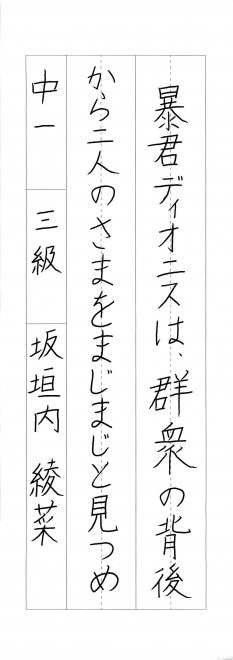 暴君ディオニスは、群衆の背後
から二人のさまをまじまじと見つめ
中一 三級 坂垣内 綾菜